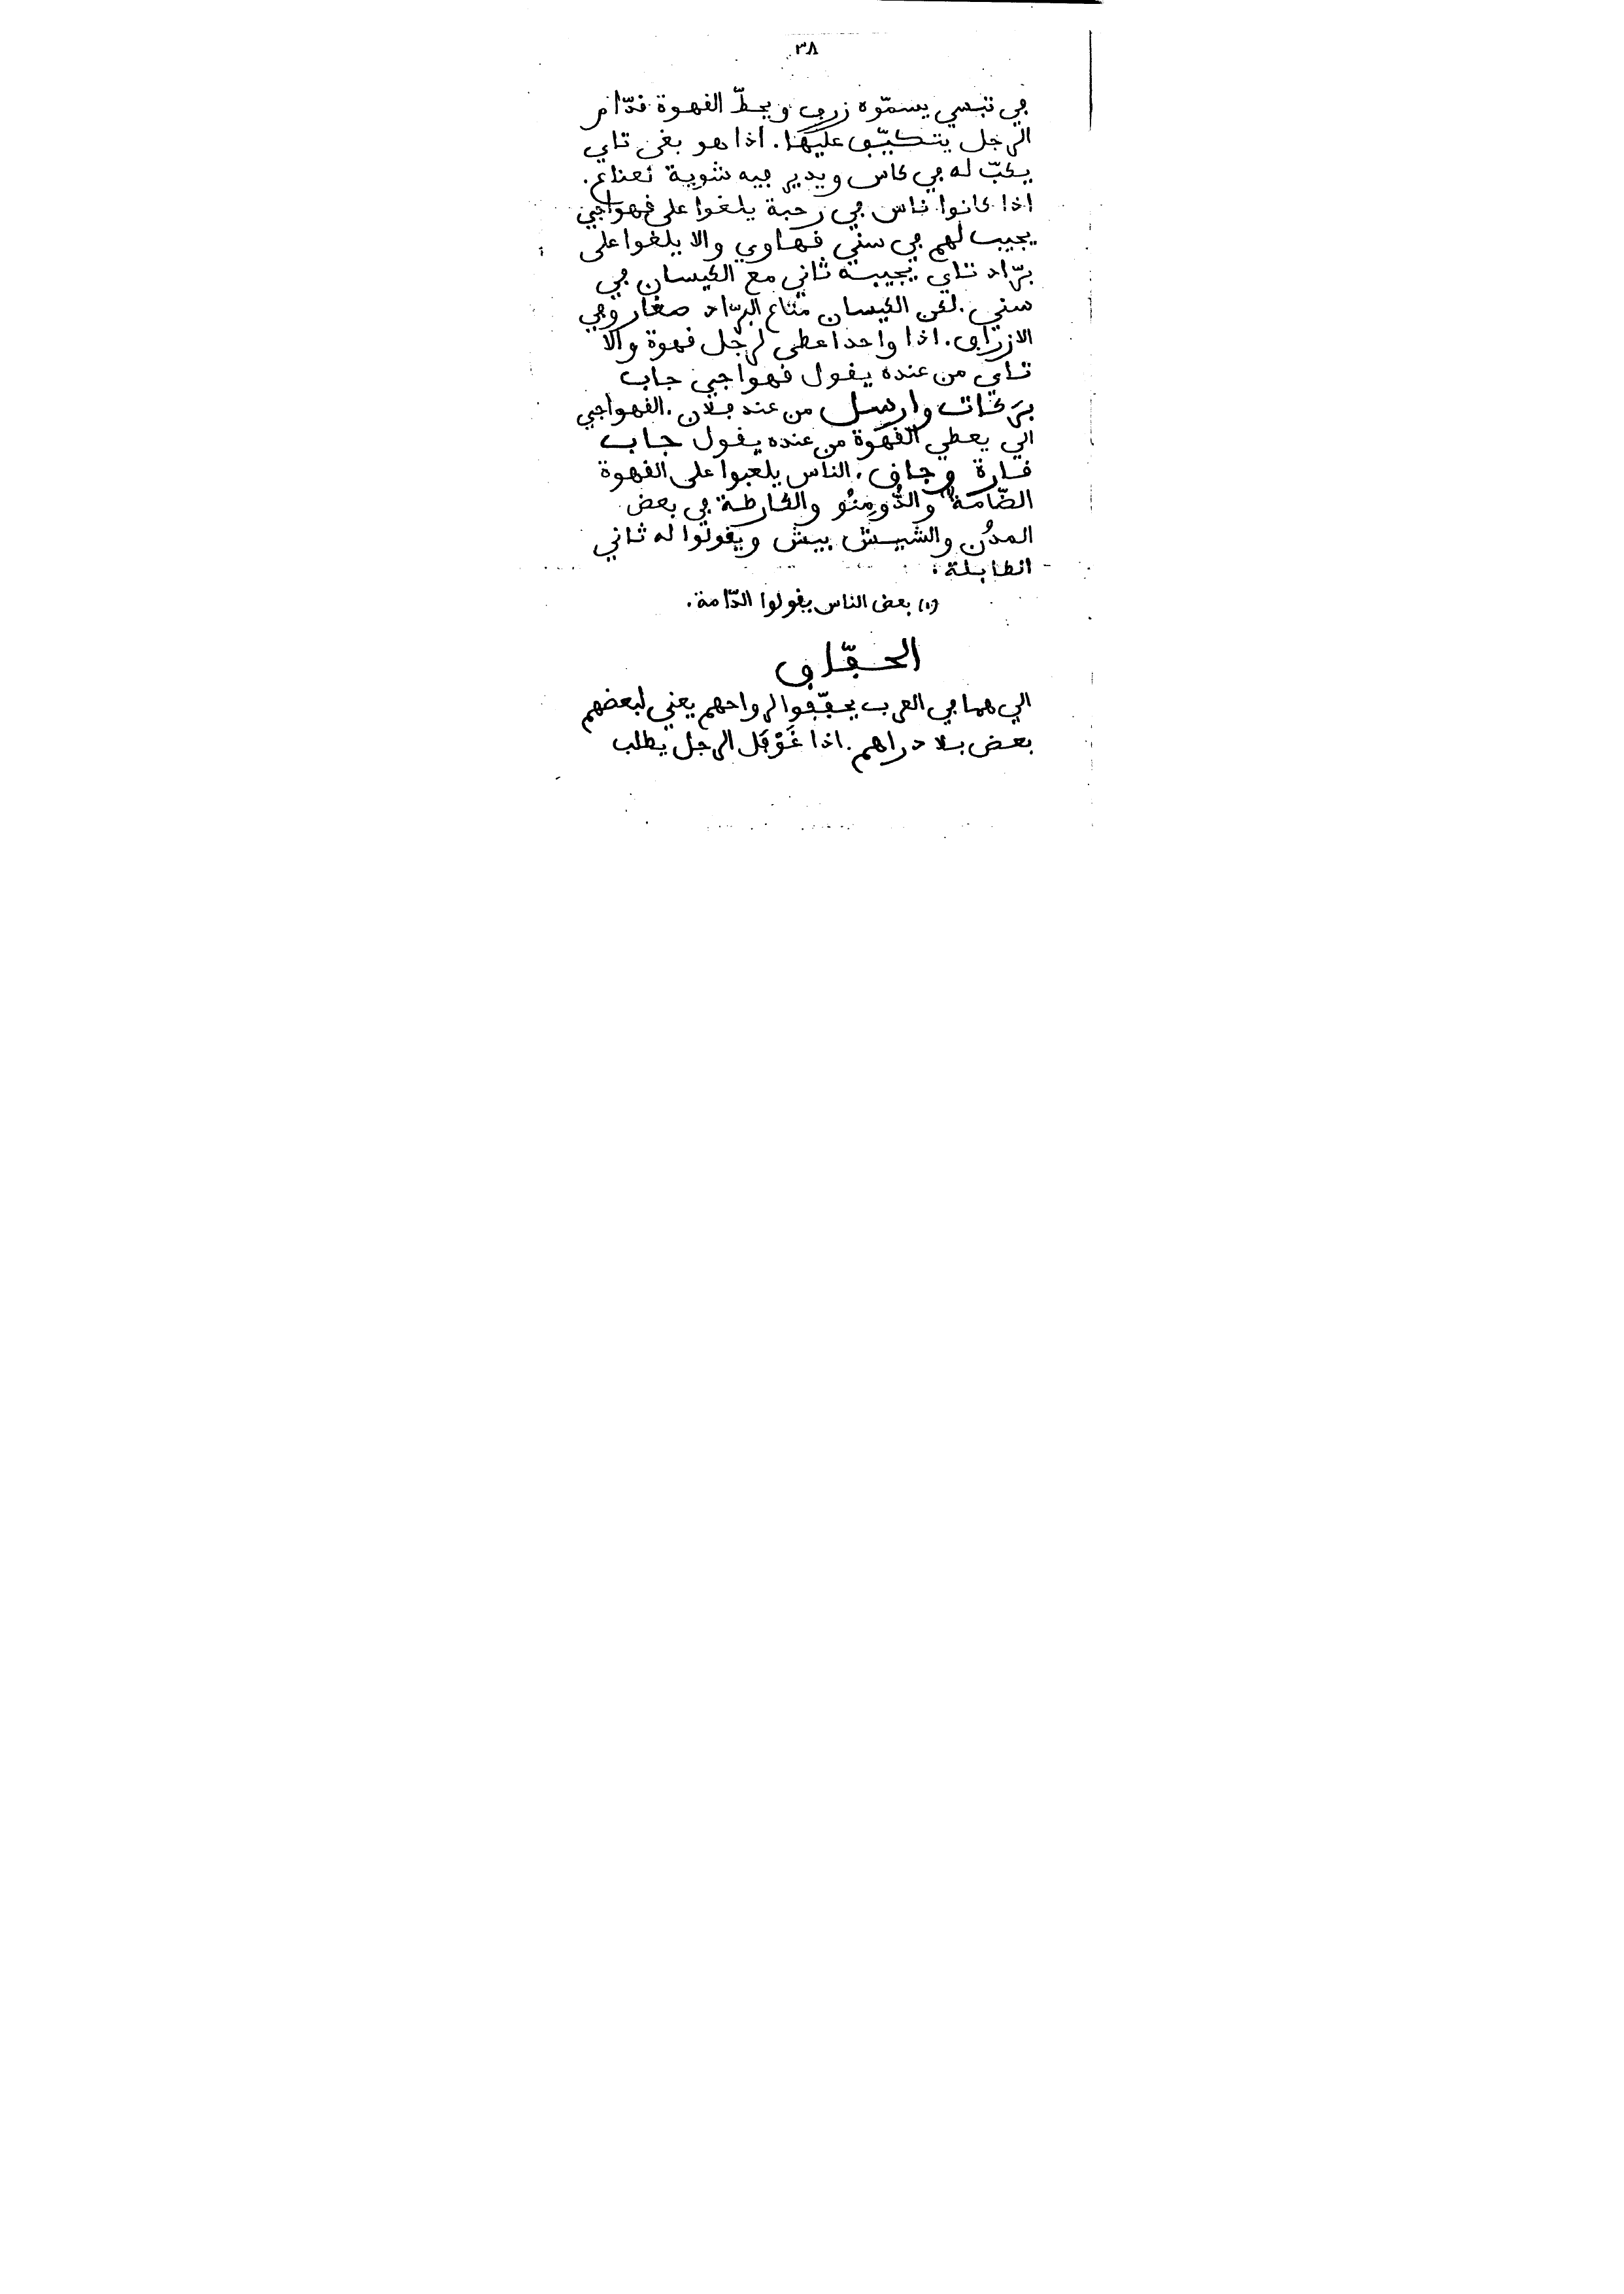 ٣٨
ڢي تبسي يسمّوه زرڢ ويحطّ الڧهوة ڧدّام
الرجل يتكيّڢ عليها. اذا هو بغى تاي
يكبّ له ڢي كاس ويدير ڢيه شوية نعناع.
اذا كانوا ناس ڢي رحبة يلغوا على ڧهواجي
يجيب لهم ڢي سني ڧهاوي والا يلغوا على
برّاد تاي يجيبه ثاني مع الكيسان ڢي
سني. لكن الكيسان متاع البرّاد صغار وڢي
الازراڢ. اذا واحد اعطى لرجل ڧهوة والا
تاي من عنده يڧول ڧهواجي جاب
بَركات وارسل من عند ڢلان. الڧهواجي
الي يعطي الڧهوة من عنده يڧول جاب
ڧارة وجاڢ. الناس يلعبوا على الڧهوة
الضّامة (١) والدُّومِنُو والكارطة ڢي بعض
المدُن والشيش بيش ويڧولوا له ثاني
الطابلة.
(١) بعض الناس يڧولوا الدّامة.
الحڢّاڢ
الي هما ڢي العرب يحڢّڢوا لرواحهم يعني لبعضهم
بعض بلا دراهم. اذا غَوْڢَل الرجل يطلب